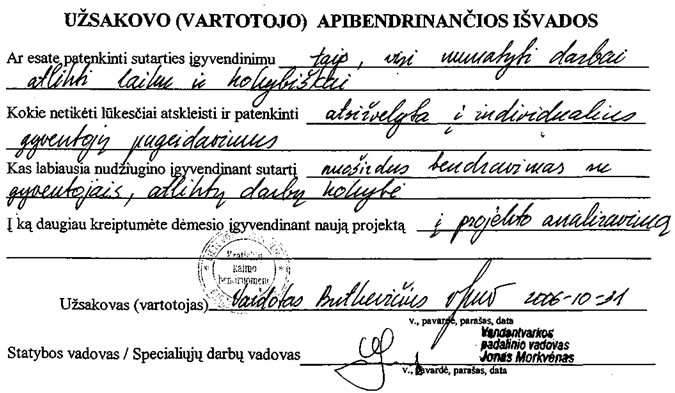 UŽSAKOVO (VARTOTOJO) APIBENDRINANČIOS IŠVADOS
Ar esate patenkinti sutarties įgyvendinimu taip, visi numatyti darbai
atlikti laiku ir kokybiškai
Kokie netikėti lūkesčiai atskleisti ir patenkinti atsižvelgta į individualius
gyventojų pageidavimus
Kas labiausia nudžiugino įgyvendinant sutartį nuoširdus bendravimas su
gyventojais, atliktų darbų kokybė
Į ką daugiau kreiptumėte dėmesio įgyvendinant naują projektą į projekto analizavimą
kaimo
bendruomenė
Užsakovas (vartotojas) Vaidotas Butkevičius 2006-10-31
v., pavardė, parašas, data
Vandentvarkos
padalinio vadovas
Jonas Morkvėnas
Statybos vadovas / Specialiųjų darbų vadovas
v., pavardė, parašas, data